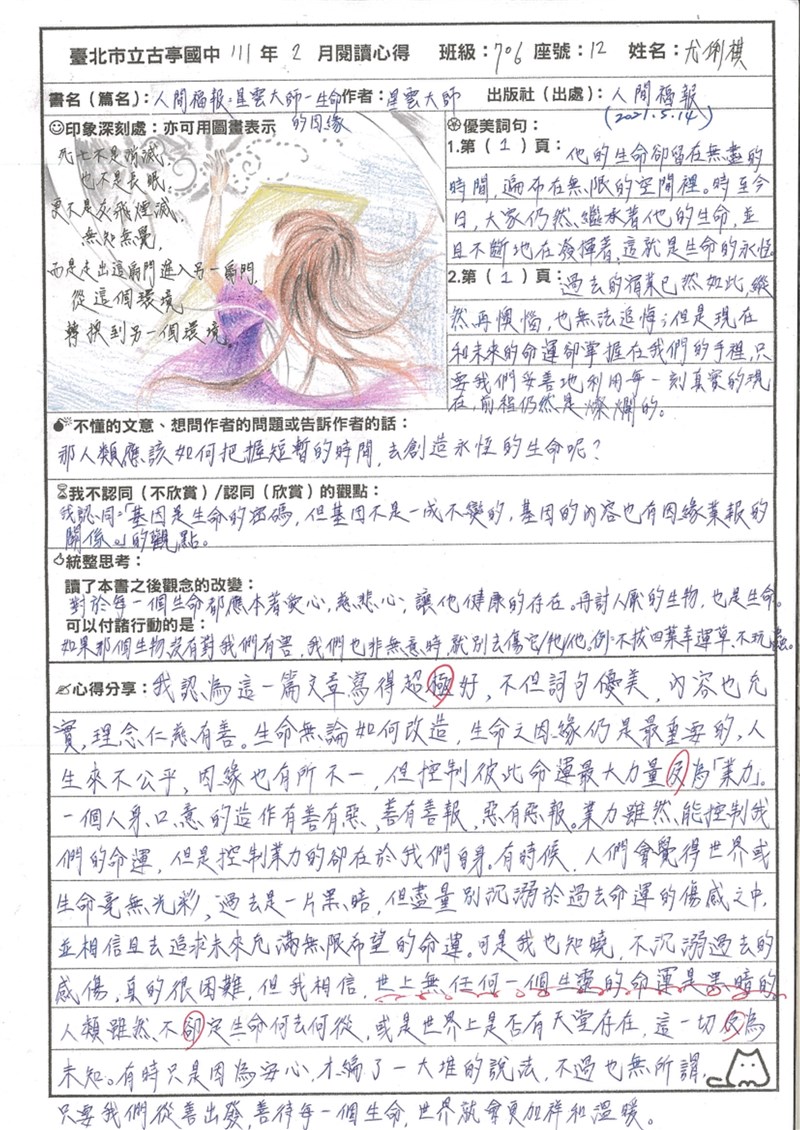 臺北市立古亭國中 111 年 2 月閱讀心得 班級：706 座號：12 姓名：尤俐棋
書名（篇名）：人間福報：星雲大師一生命的因緣 作者：星雲大師 出版社（出處）：人間福報
(2021.5.14)
☺印象深刻處：亦可用圖畫表示
死亡不是消滅，
也不是長眠，
更不是灰飛煙滅，
無知無覺，
而是走出這扇門進入另一扇門，
從這個環境
轉換到另一個環境。
優美詞句：
1.第（1）頁：他的生命卻留在無盡的
時間，遍布在無限的空間裡。時至今
日，大家仍然繼承著他的生命，並
且不斷地在發揮著，這就是生命的永恆。
2.第（1）頁：過去的宿業已然如此，縱
然再懊惱，也無法追悔；但是現在
和未來的命運卻掌握在我們的手裡，只
要我們妥善地利用每一刻真實的現
在，前程仍然是燦爛的。
不懂的文意、想問作者的問題或告訴作者的話：
那人類應該如何把握短暫的時間，去創造永恆的生命呢？
我不認同（不欣賞）/認同（欣賞）的觀點：
我認同：「基因是生命的密碼，但基因不是一成不變的，基因的內容也有因緣業報的
關係。」的觀點。
統整思考：
讀了本書之後觀念的改變：
對於每一個生命都應本著愛心，慈悲心，讓他健康的存在。再討人厭的生物，也是生命。
可以付諸行動的是：
如果那個生物沒有對我們有害，我們也非無意時，就別去傷它/牠/他。例：不拔四葉幸運草、不玩蟲。
心得分享：我認為這一篇文章寫得超極好，不但詞句優美，內容也充
實，理念仁慈有善。生命無論如何改造，生命之因緣仍是最重要的，人
生來不公平，因緣也有所不一，但控制彼此命運最大力量反為「業力」。
一個人身、口、意的造作有善有惡，善有善報，惡有惡報。業力雖然能控制我
們的命運，但是控制業力的卻在於我們自身。有時候，人們會覺得世界或
生命毫無光彩，過去是一片黑暗，但盡量別沉溺於過去命運的傷感之中，
並相信且去追求未來充滿無限希望的命運。可是我也知曉，不沉溺過去的
感傷，真的很困難，但我相信，世上無任何一個生靈的命運是黑暗的
人類雖然不卻定生命何去何從，或是世界上是否有天堂存在，這一切反為
未知。有時只是因為安心，才編了一大堆的說法，不過也無所謂，
只要我們從善出發，善待每一個生命，世界就會更加祥和溫暖。